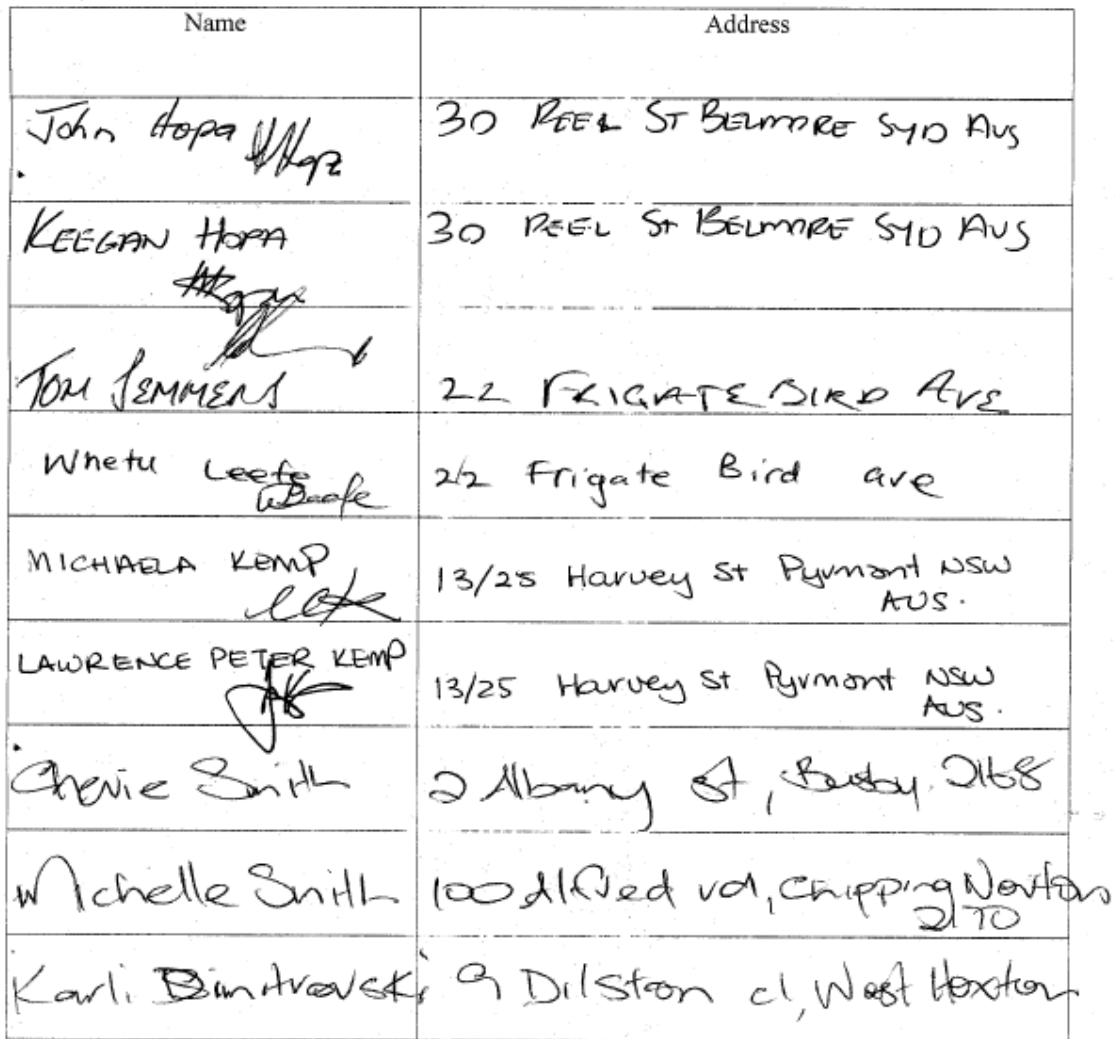 Name Address
John Hopa 30 PEEL ST BELMORE SYD AUS
KEEGAN HOPA 30 PEEL St BELMORE SYD AUS
TOM SEMMENS 22 FRIGATE BIRD AVE
Whetu Leefe 22 Frigate Bird ave
MICHAELA KEMP 13/25 Harvey St Pyrmont NSW
AUS.
LAWRENCE PETER KEMP 13/25 Harvey St Pyrmont NSW
AUS.
Cherie Smith 2 Albany St, Busby. 2168
Michelle Smith 100 Alfred rd, Chipping Norton
2170
Karli Dimitrovski 9 Dilston cl, West Hoxton